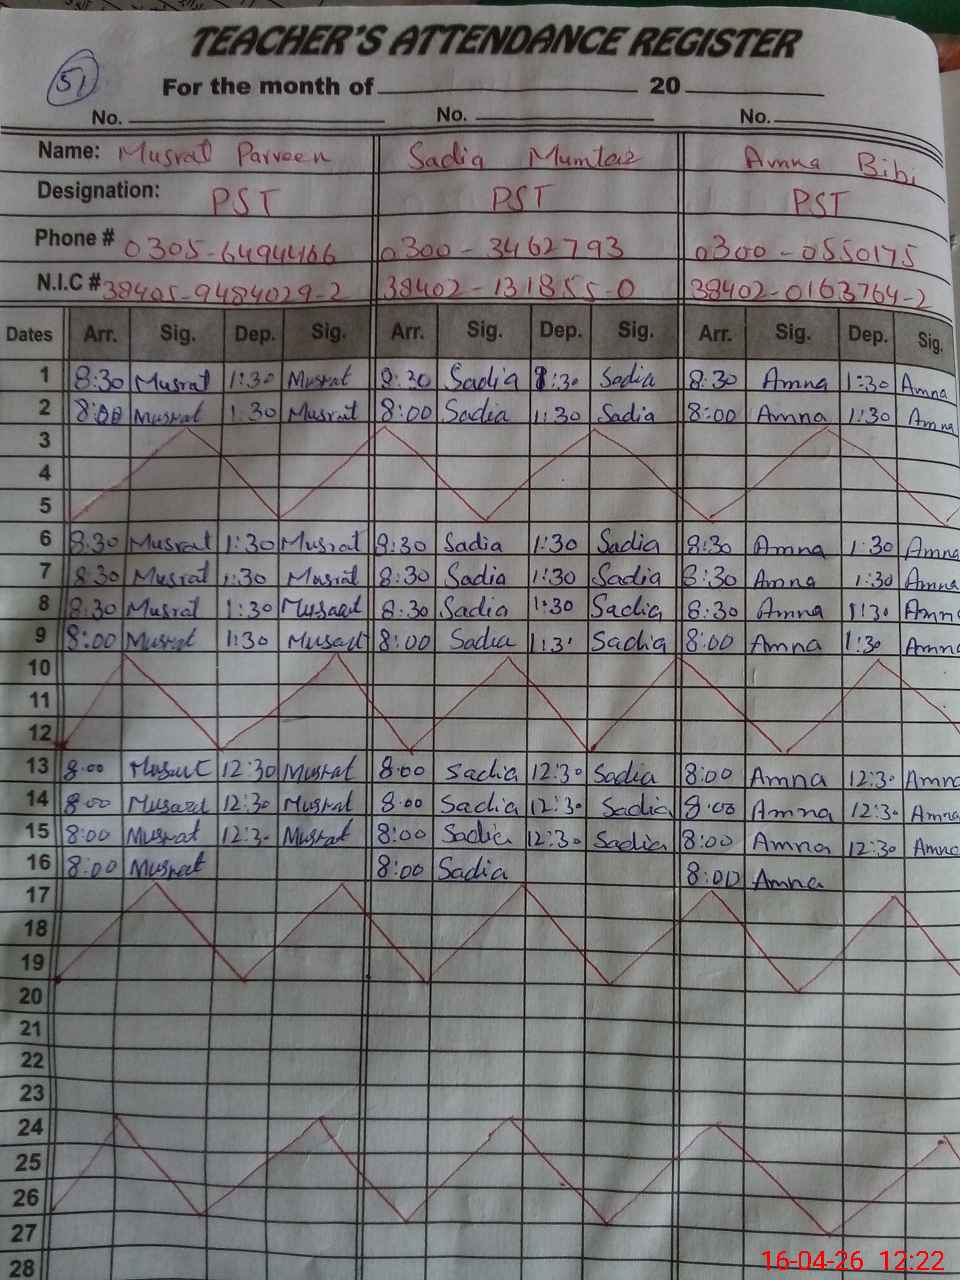 TEACHER'S ATTENDANCE REGISTER
51
For the month of 20
No. No. No.
Name: Musrat Parveen Sadia Mumtaz Amna Bibi
Designation: PST PST PST
Phone # 0305-6494466 0300-3462793 0300-0550175
N.I.C # 38405-9484029-2 38402-131855-0 38402-0163764-2
Dates Arr. Sig. Dep. Sig. Arr. Sig. Dep. Sig. Arr. Sig. Dep. Sig.
1 8:30 Musrat 1:30 Musrat 8:30 Sadia 1:30 Sadia 8:30 Amna 1:30 Amna
2 8:00 Musrat 1:30 Musrat 8:00 Sadia 1:30 Sadia 8:00 Amna 1:30 Amna
3
4
5
6 8:30 Musrat 1:30 Musrat 8:30 Sadia 1:30 Sadia 8:30 Amna 1:30 Amna
7 8:30 Musrat 1:30 Musrat 8:30 Sadia 1:30 Sadia 8:30 Amna 1:30 Amna
8 8:30 Musrat 1:30 Musrat 8:30 Sadia 1:30 Sadia 8:30 Amna 1:30 Amna
9 8:00 Musrat 1:30 Musrat 8:00 Sadia 1:3' Sadia 8:00 Amna 1:30 Amna
10
11
12
13 8:00 Musrat 12:30 Musrat 8:00 Sadia 12:30 Sadia 8:00 Amna 12:30 Amna
14 8:00 Musrat 12:30 Musrat 8:00 Sadia 12:30 Sadia 8:00 Amna 12:30 Amna
15 8:00 Musrat 12:30 Musrat 8:00 Sadia 12:30 Sadia 8:00 Amna 12:30 Amna
16 8:00 Musrat 8:00 Sadia 8:00 Amna
17
18
19
20
21
22
23
24
25
26
27
28
16-04-26 12:22